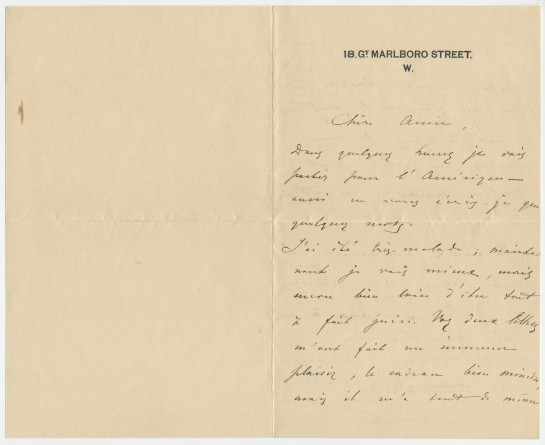 18. GT MARLBORO STREET,
W.
Chère Amie,
Dans quelques heures je vais
partir pour l'Amérique —
aussi ne vous écris-je que
quelques mots.
J'ai été très-malade ; mainte-
nant je vais mieux, mais
encore bien loin d'être tout
à fait guéri. Vos deux lettres
m'ont fait un immense
plaisir, le cadeau bien moindre,
mais il m'a tout de même